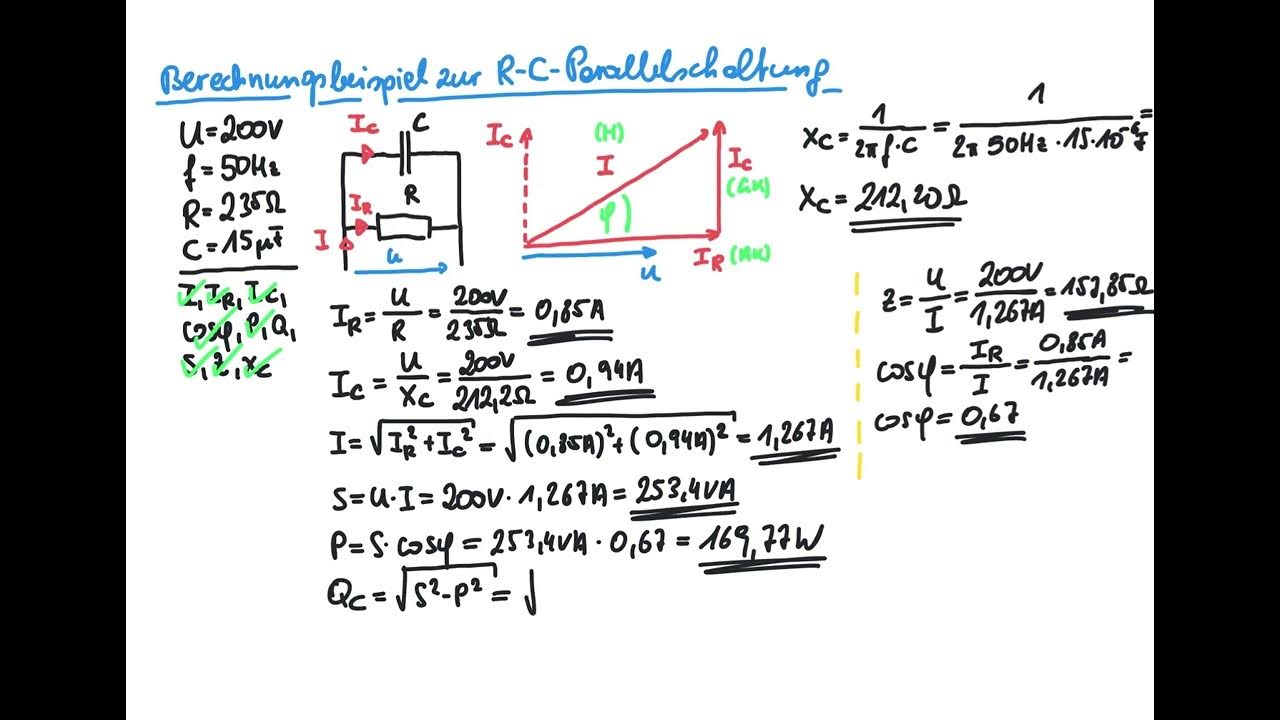 Berechnungsbeispiel zur R-C-Parallelschaltung
U = 200V
f = 50Hz
R = 235Ω
C = 15µF
I, IR, IC,
cosφ, P, Q,
S, Z, XC
IC C
IR R
I
u
IC (H) I IC (GK)
φ
IR (AK)
u
XC = 1/(2π f·C) = 1/(2π 50Hz · 15·10⁻⁶F) =
XC = 212,20Ω
IR = U/R = 200V/235Ω = 0,85A
IC = U/XC = 200V/212,2Ω = 0,94A
I = √(IR² + IC²) = √((0,85A)² + (0,94A)²) = 1,267A
S = U·I = 200V · 1,267A = 253,4VA
P = S·cosφ = 253,4VA · 0,67 = 169,77W
QC = √(S² - P²) = √
Z = U/I = 200V/1,267A = 157,85Ω
cosφ = IR/I = 0,85A/1,267A =
cosφ = 0,67